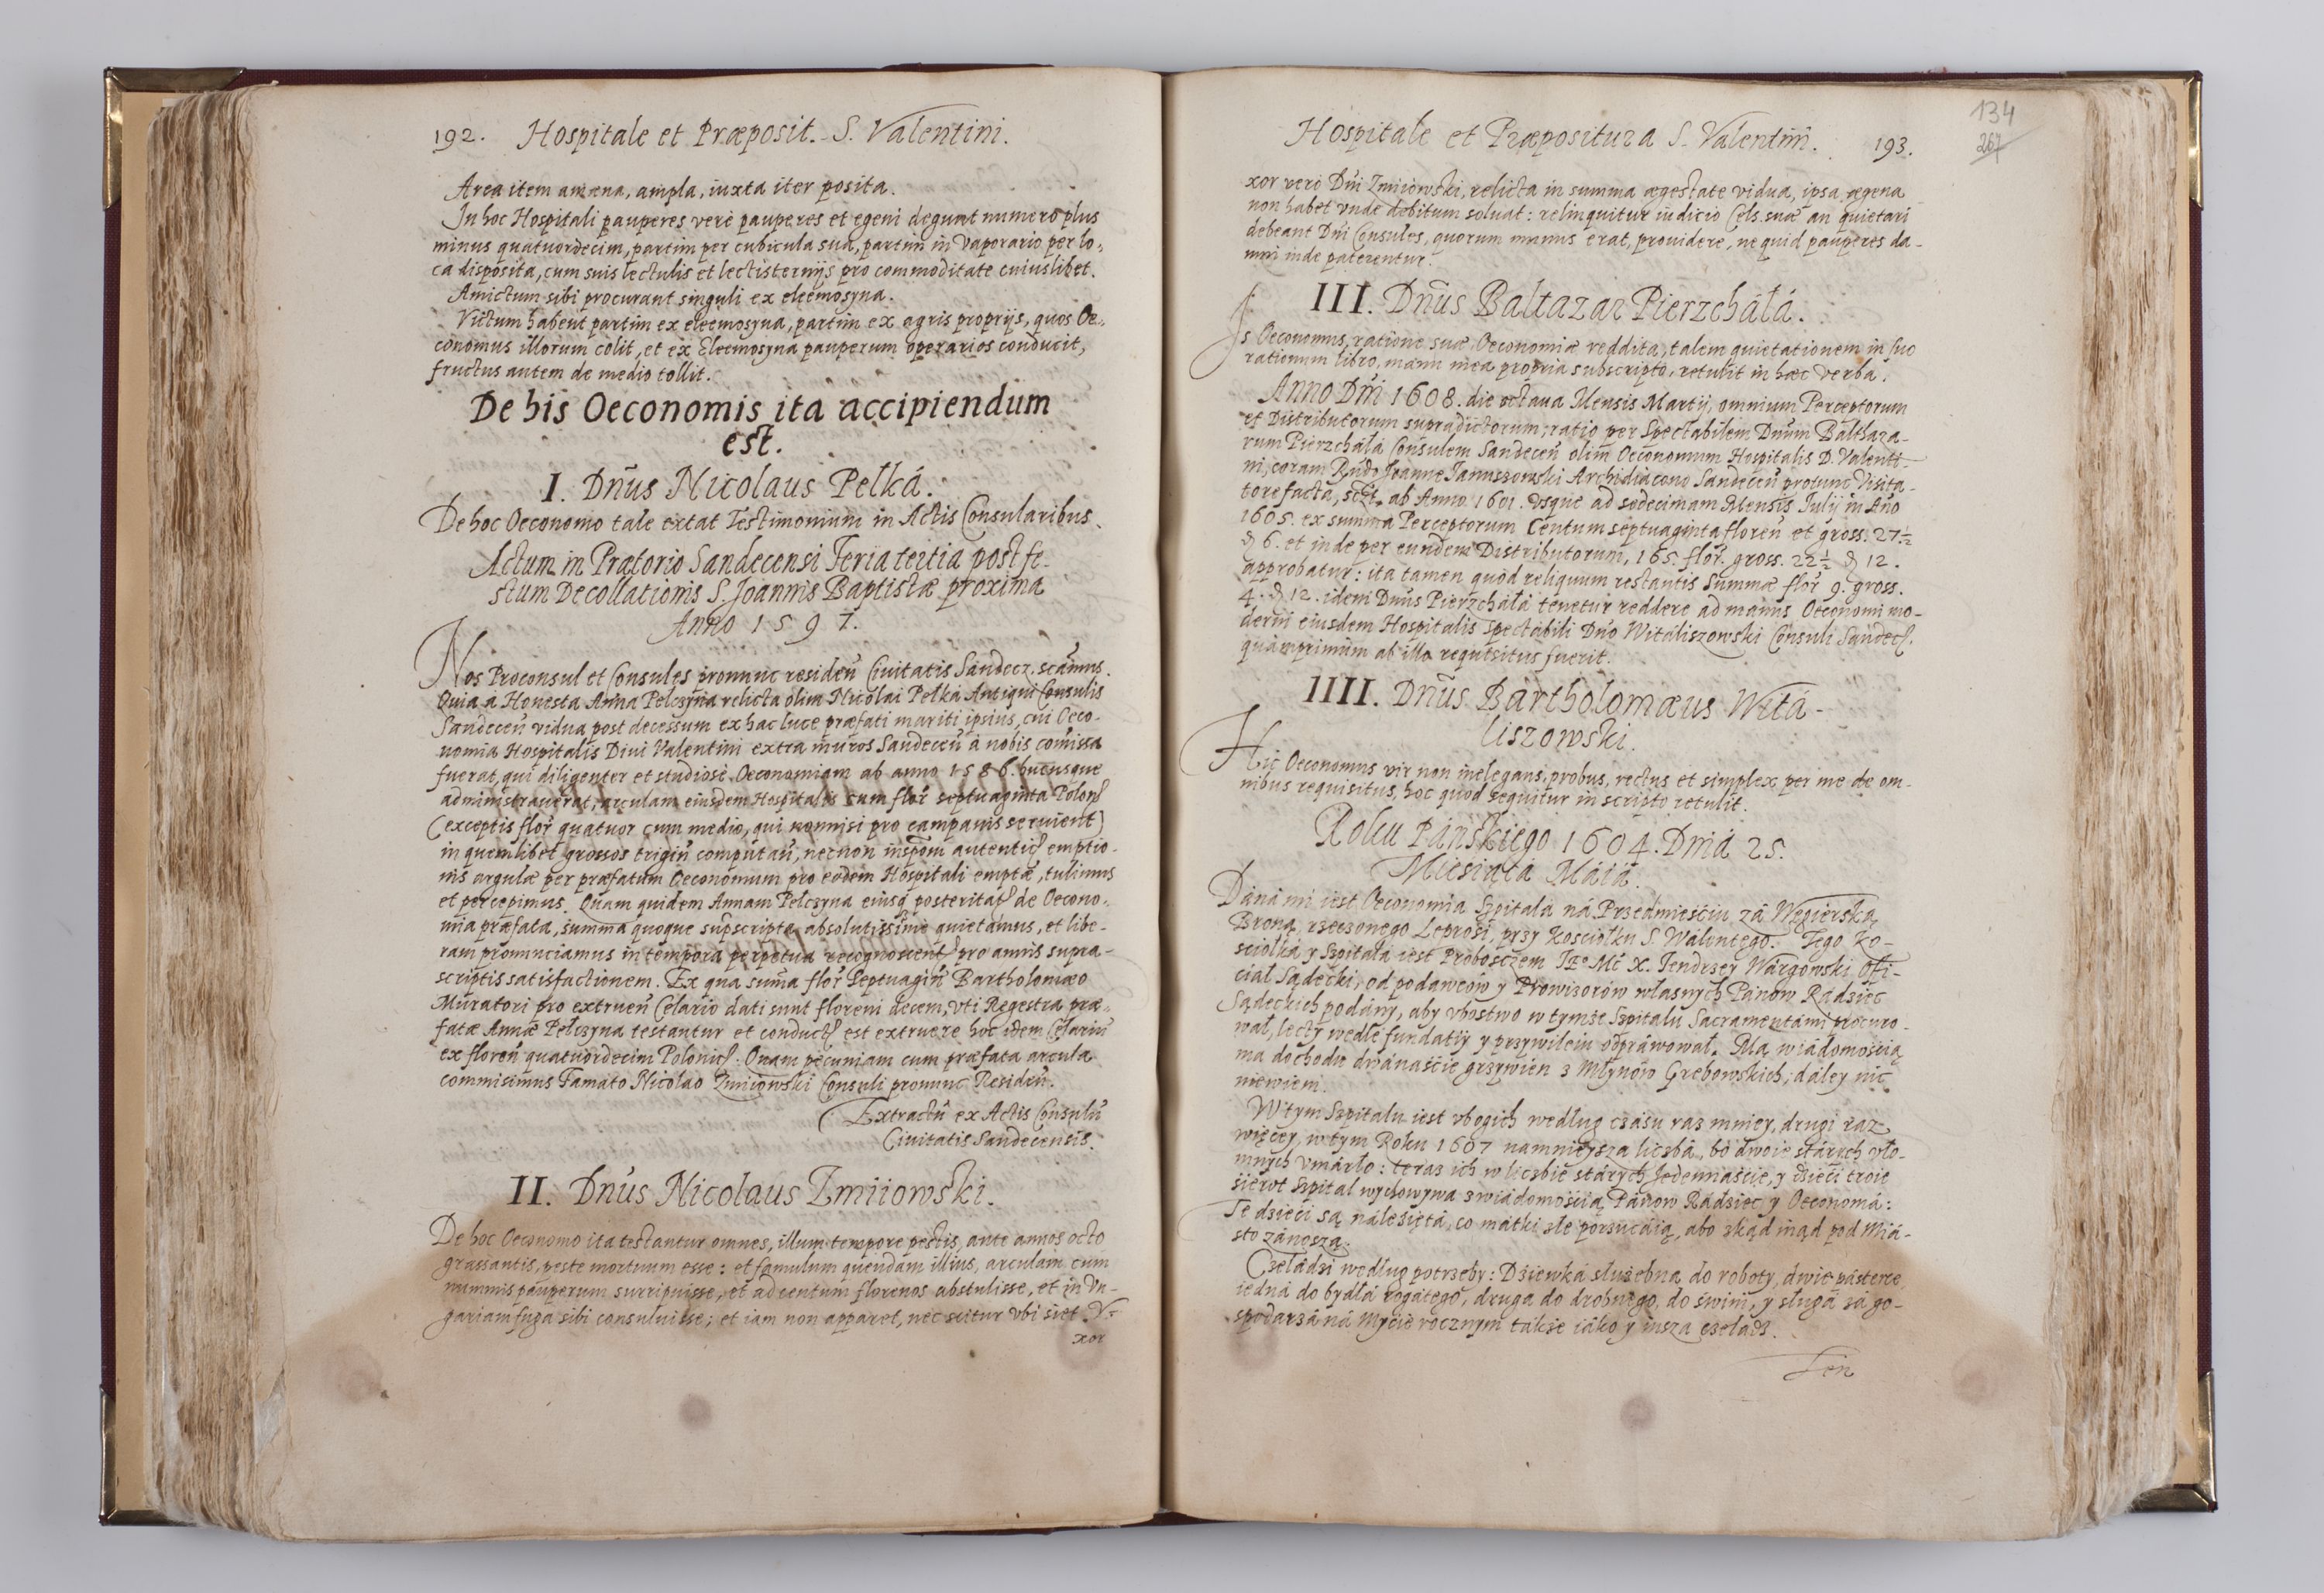 192. Hospitale et Præposit. S. Valentini.
Area item amæna, ampla, iuxta iter posita.
In hoc Hospitali pauperes verè pauperes et egeni degunt numero plus
minus quatuordecim, partim per cubicula sua, partim in vaporario per lo-
ca disposita, cum suis lectulis et lectisternijs pro commoditate cuiuslibet.
Amictum sibi procurant singuli ex eleemosyna.
Victum habent partim ex eleemosyna, partim ex agris proprijs, quos Oe-
conomus illorum colit, et ex Eleemosyna pauperum operarios conducit,
fructus autem de medio tollit.
De his Oeconomis ita accipiendum
est.
I. Dnūs Nicolaus Pełká.
De hoc Oeconomo tale extat Testimonium in Actis Consularibus.
Actum in Prætorio Sandecensi Feria tertia post fe-
stum Decollationis S. Joannis Baptistæ proxima
Anno 1597.
Nos Proconsul et Consules pronunc residen̄ Ciuitatis Sandecz. scimus.
Quia à Honesta Anna Pelczyna relicta olim Nicolai Pełká Antiqui Consulis
Sandecen̄ vidua post decessum ex hac luce præfati mariti ipsius, cui Oeco-
nomia Hospitalis Diui Valentini extra muros Sandecen̄ à nobis com̄issa
fuerat, qui diligenter et studiosè Oeconomiam ab anno 1586. hucusque
administrauerat, arculam eiusdem Hospitalis cum flor̄ septuaginta Polon
(exceptis flor̄ quatuor cum medio, qui nonnisi pro campanis seruient)
in quemlibet grossos trigin̄ computan̄, necnon inspōm autentic emptio-
nis argulæ per præfatum Oeconomum pro eodem Hospitali emptæ, tulimus
et percepimus. Quam quidem Annam Pelczyna eiusq posteritat de Oecono-
mia præfata, summa quoque suprscripta absolutissimè quietamus, et libe-
ram pronunciamus in tempora perpetua recognoscent pro annis supra-
scriptis satisfactionem. Ex qua sum̄a flor̄ Septuagin̄ Bartholomæo
Muratori pro extruen̄ Celario dati sunt floreni decem, vti Regestra præ-
fatæ Annæ Pelczyna testantur et conduct est extruere hoc idem Celariū
ex floren̄ quatuordecim Polonic. Quam pecuniam cum præfata arcula
commisimus Famato Nicolao Zmiiowski Consuli pronunc Residen̄.
Extractū ex Actis Consulū
Ciuitatis Sandecensis.
II. Dnūs Nicolaus Zmiiowski.
De hoc Oeconomo ita testantur omnes, illum tempore pestis, ante annos octo
grassantis, peste mortuum esse: et famulum quendam illius, arculam cum
nummis pauperum surripuisse, et ad centum florenos abstulisse, et in Vn-
gariam fuga sibi consuluisse; et iam non apparet, nec scitur vbi siet. V-
xor
Hospitale et Præpositura S. Valentini. 193.
134
267
xor verò Dn̄i Zmiiowski, relicta in summa ægestate vidua, ipsa ægena
non habet vnde debitum soluat: relinquitur iudicio Cels. suæ an quietari
debeant Dn̄i Consules, quorum munus erat, prouidere, ne quid pauperes da-
mni inde paterentur.
III. Dnūs Baltazar Pierzcháłá.
Is Oeconomus, ratione suæ Oeconomiæ reddita, talem quietationem in suo
rationum libro, manu mea propria subscripto, retulit in hæc verba.
Anno Dn̄i 1608. die octaua Mensis Martij, omnium Perceptorum
et Distributorum supradictorum, ratio per Spectabilem Dnūm Balthaza-
rum Pierzchála Consulem Sandecen̄ olim Oeconomum Hospitalis D. Valenti-
ni, coram Rn̄do Joanne Januszowski Archidiacono Sandecen̄ protunc Visita-
tore facta, sclt. ab Anno 1601. vsque ad sedecimam Mensis Julij in Año
1605. ex summa Perceptorum Centum septuaginta floren̄ et gross. 27.½
₰ 6. et inde per eundem Distributorum, 165. flor̄. gross. 22½ ₰ 12.
approbatur: ita tamen quòd reliquum restantis Summæ flor̄ 9. gross.
4. ₰ 12. idem Dnūs Pierzchálá tenetur reddere ad manus Oeconomi mo-
derni eiusdem Hospitalis Spectabili Dn̄o Witáliszowski Consuli Sandec.
quàmprimùm ab illo requisitus fuerit.
IIII. Dnūs Bartholomæus Witá-
liszowski.
Hic Oeconomus vir non inelegans, probus, rectus et simplex per me de om-
nibus requisitus, hoc quod sequitur in scripto retulit.
Roku Páńskiego 1604. Dniá 25.
Miesiącá Máiá.
Dána mi iest Oeconomia Szpitalá ná Przedmieściu zá Węgierską
Broną rzeczonego Leprosi, przy Kościołku S. Wálentego. Tego Ko-
ściołká y Szpitalá iest Proboszczem Jeo Mć X. Jendrzey Wárgowski Offi-
ciał Sądecki, od podawców y Prowizorów własnych Pánow Rádziec
Sądeckich podány, aby vbostwo w tymże Szpitalu Sacramentámi procuro-
wał, lecty wedle fundatiy y przywileiu odpráwował. Má wiádomością
ma dochodu dwánaście grzywien z Młynów Grębowskich, dáley nic
niewiem.
W tym Szpitalu iest vbogich według czásu raz mniey, drugi raz
więcey, w tym Roku 1607 namnieysza liczbá, bo dwoie stárych vło-
mnych vmárło: teraz ich w liczbie stárych Jedennaście, y dzieci troie
sierot szpital wychowywa z wiádomością Pánow Rádziec y Oeconomá:
Te dzieci są náleźiętá, co mátki złe porzucáią, abo zkąd inąd pod Miá-
sto zánoszą.
Czeládzi według potrzeby: Dziewká służebna do roboty, dwie pásterce,
iedná do bydłá rogátego, druga do drobnego, do świni, y sługá zá go-
spodarzá ná mycie rocznym także iáko y insza czeladź.
Ten